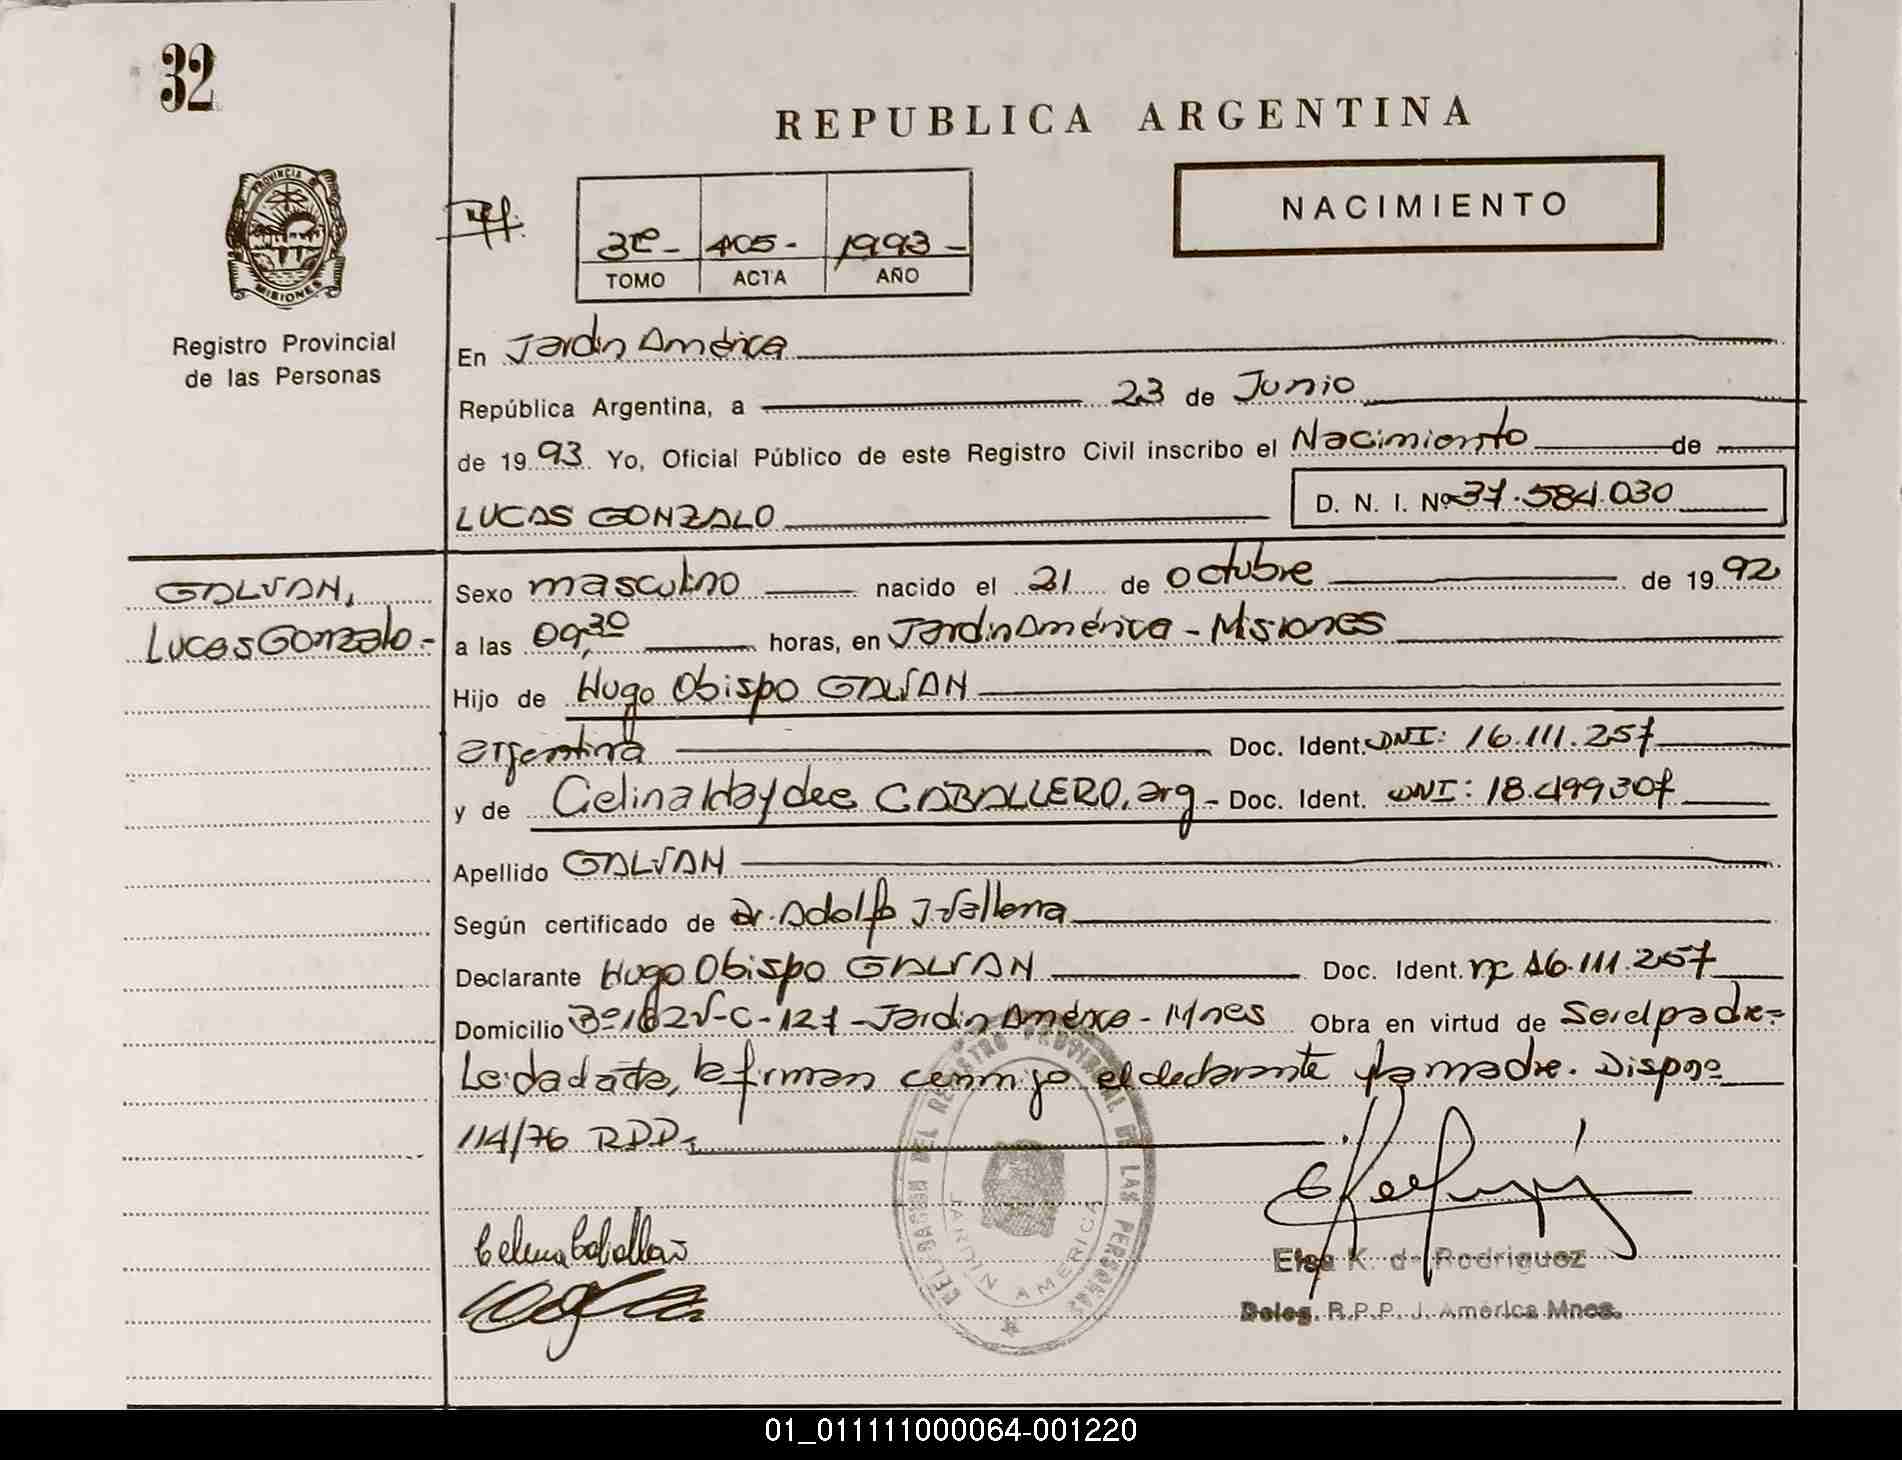 32
REPUBLICA ARGENTINA
PROVINCIA D
MISIONES
Registro Provincial
de las Personas
3º- 405- 1993-
TOMO ACTA AÑO
NACIMIENTO
En Jardín América
República Argentina, a 23 de Junio
de 1993. Yo, Oficial Público de este Registro Civil inscribo el Nacimiento de
LUCAS GONZALO D. N. I. Nº 37.584.030
GALVAN,
Lucas Gonzalo-
Sexo masculino nacido el 21 de octubre de 1992
a las 09,30 horas, en Jardín América - Misiones
Hijo de Hugo Obispo GALVAN
argentina Doc. Ident. DNI: 16.111.257
y de Celina Haydee CABALLERO, arg- Doc. Ident. DNI: 18.499.307
Apellido GALVAN
Según certificado de Dr. Adolfo J. Vallena
Declarante Hugo Obispo GALVAN Doc. Ident. nº 16.111.257
Domicilio -C-127-Jardín América - Mnes Obra en virtud de Ser el padre-
Leida el acta, la firman conmigo el declarante y la madre. Dispos.
114/76 RPP-
DELEGACION DEL REGISTRO PROVINCIAL DE LAS PERSONAS
JARDIN AMERICA
Celina Caballero
Elsa K. de Rodriguez
Deleg. R.P.P. J. América Mnes.
01_011111000064-001220